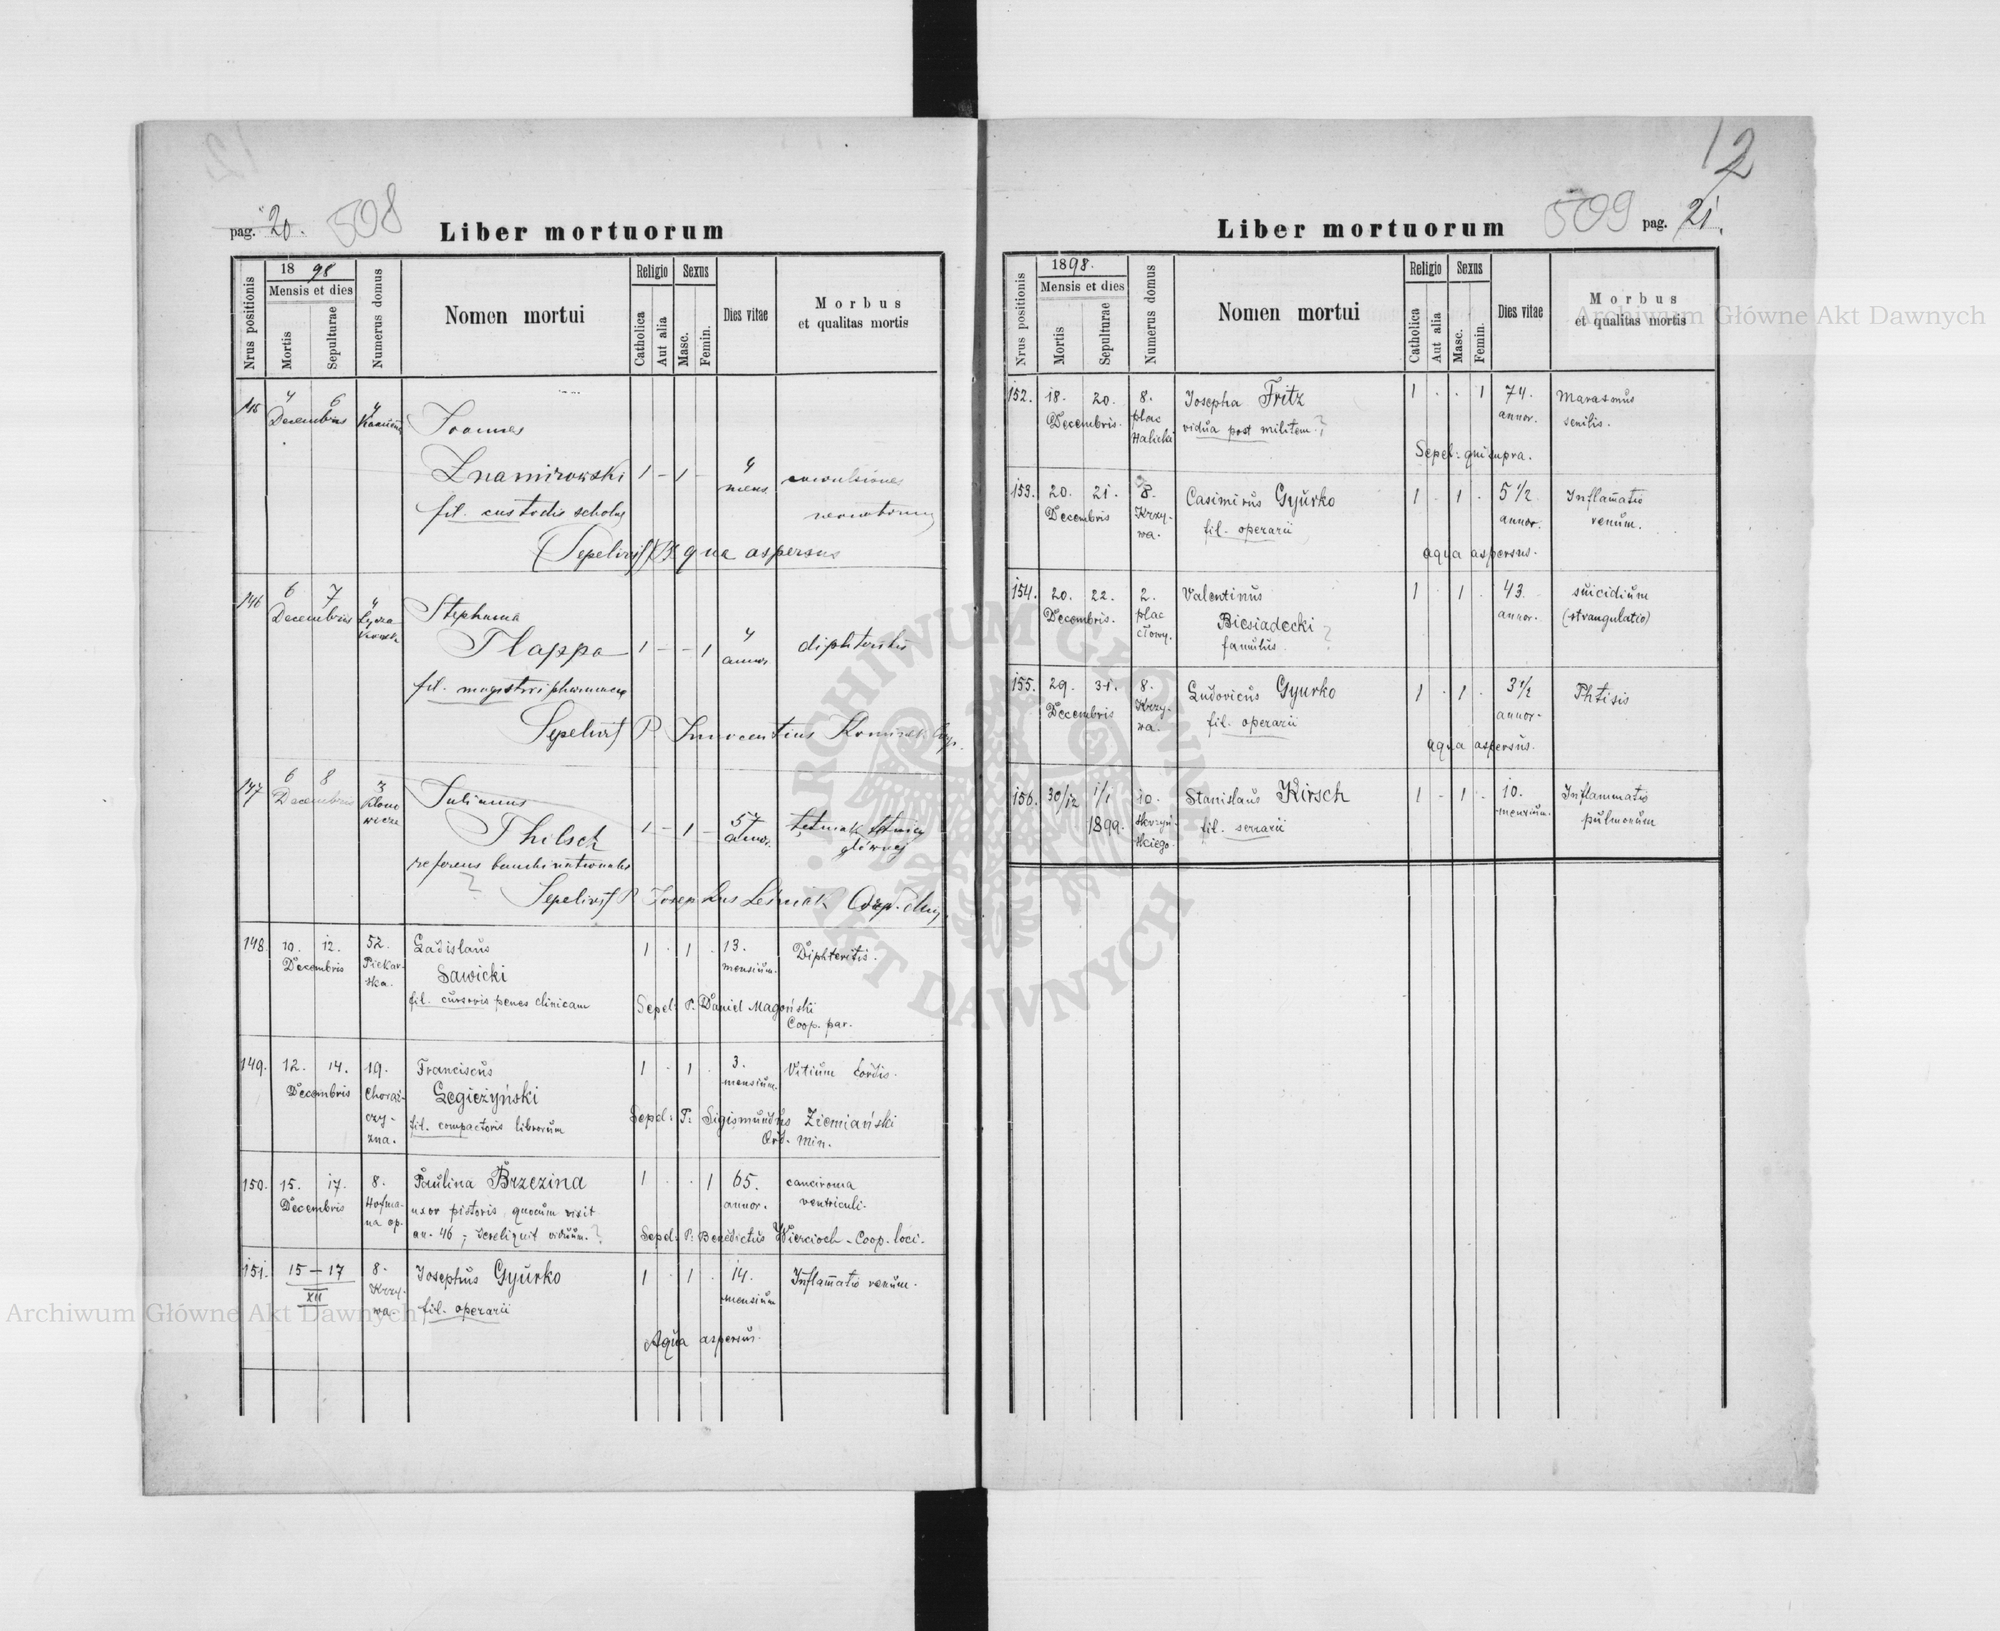 pag. 20. 508
Liber mortuorum
Nrus positionis
1898
Mensis et dies
Mortis
Sepulturae
Numerus domus
Nomen mortui
Religio
Catholica
Aut alia
Sexus
Masc.
Femin.
Dies vitae
Morbus
et qualitas mortis
145 4 6 4
Decembris
Joannes
Znamirowski 1 - 1 - 4
mens
fil. custodis scholae
Sepelivit Aqua aspersus
146 6 7 4
Decembris
Stephana
Tlappa 1 - - 1 4
annor. diphteritis
fil. magistri pharmaciae
Sepelivit P. Innocentius
147 6 8 3
Decembris
Julianus
Thilsch 1 - 1 - 57
annor. tętniak tętnicy
głównej
referens banchi nationalis
?
Sepelivit P Josephus Leśniak
148. 10. 12. 52. Ladislaus 1 . 1 . 13. Diphteritis.
Decembris Piekar-
ska. Sawicki mensium.
fil. cursoris penes clinicam
Sepel: P. Daniel Magoński
Coop. par.
149. 12. 14. 19. Franciscus 1 . 1 . 3. Vitium Cordis.
Decembris Chorąż-
czy-
zna. Legieżyński mensium.
fil. compactoris librorum
Sepel: P: Sigismundus Ziemiański
Ord. Min.
150. 15. 17. 8. Paulina Brzezina 1 . . 1 65. canciroma
Decembris Hofma-
na op. uxor pistoris, quocum vixit annor. ventriculi.
an. 46, dereliquit viduum. ?
Sepel: P: Benedictus Wiercioch - Coop. loci.
151. 15 - 17 8. Josephus Gyürko 1 . 1 . 14. Inflam̄atio renum.
XII Krzy-
wa. fil. operarii mensium
Aqua aspersus.
12
509 pag. 21.
Liber mortuorum
Nrus positionis
1898.
Mensis et dies
Mortis
Sepulturae
Numerus domus
Nomen mortui
Religio
Catholica
Aut alia
Sexus
Masc.
Femin.
Dies vitae
Morbus
et qualitas mortis
152. 18. 20. 8. Josepha Fritz 1 . . 1 74. Marasmus
Decembris. plac
Halicki vidua post militem. ? annor. senilis.
Sepel: qui supra.
153. 20. 21. 8. Casimirus Gyürko 1 . 1 . 5 1/2 Inflam̄atio
Decembris Krzy-
wa. fil. operarii annor. renum.
aqua aspersus.
154. 20. 22. 2. Valentinus 1 . 1 . 43. suicidium
Decembris. plac
cłowy. Biesiadecki ? annor. (strangulatio)
famulus
155. 29. 31. 8. Ludovicus Gyurko 1 . 1 . 3 1/2 Phtisis
Decembris Krzy-
wa. fil. operarii annor.
aqua aspersus.
156. 30/12 1/1 10. Stanislaus Kirsch 1 - 1 - 10. Inflammatio
1899. Skrzyń-
skiego. fil. serrarii mensium. pulmonum
Archiwum Główne Akt Dawnych
Archiwum Główne Akt Dawnych
ARCHIWUM GŁÓWNE AKT DAWNYCH